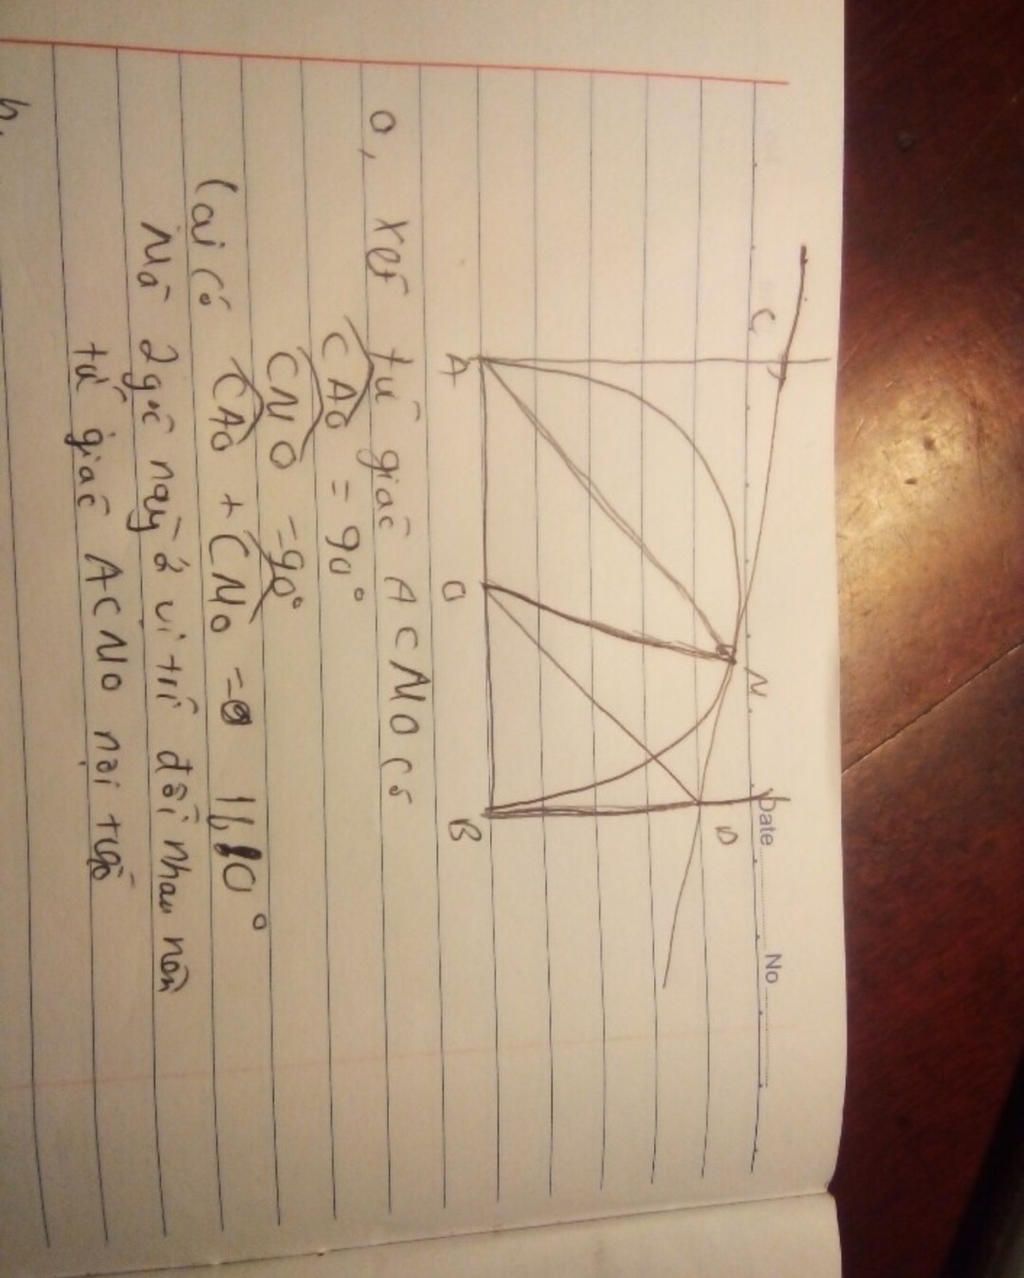 Date
No
C
M
D
A
O
B
a, xét tứ giác ACMO có
CAO = 90°
CMO = 90°
Lại có CAO + CMO = 180°
Mà 2 góc này ở vị trí đối nhau nên
tứ giác ACMO nội tiếp
b,